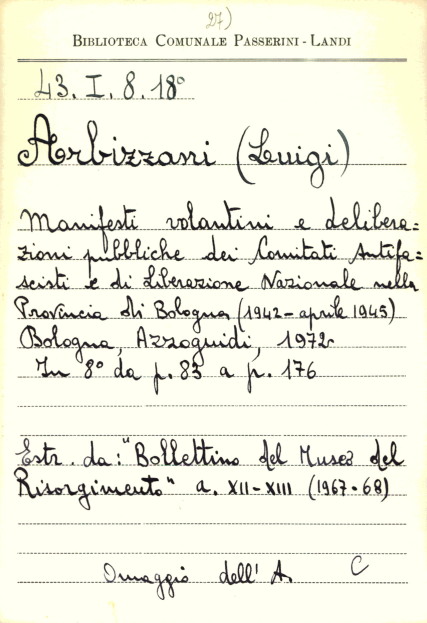 27)
BIBLIOTECA COMUNALE PASSERINI-LANDI
43. I. 8. 18°
Arbizzani (Luigi)
Manifesti volantini e delibera=
zioni pubbliche dei Comitati Antifa=
scisti e di Liberazione Nazionale nella
Provincia di Bologna (1942-aprile 1945)
Bologna, Azzoguidi, 1972
In 8° da p. 83 a p. 176
Estr. da: "Bollettino del Museo del
Risorgimento" a. XII-XIII (1967-68)
Omaggio dell' A. C